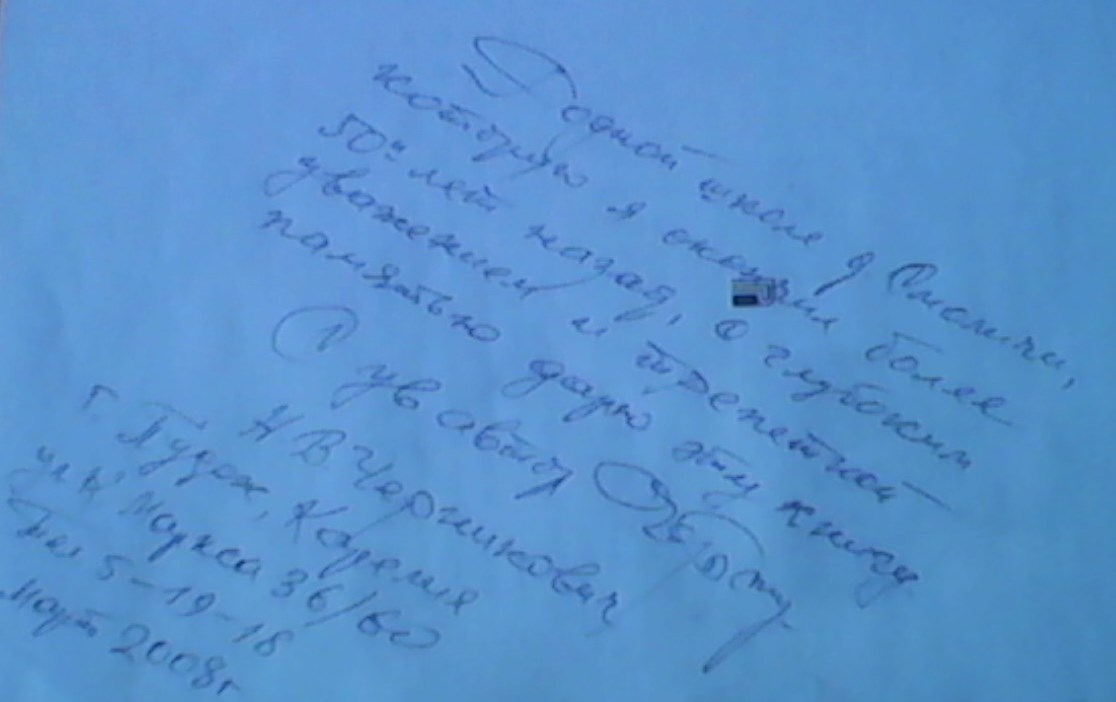 Родной школе д
которую я окончил более
50и лет назад, с глубоким
уважением и трепетной
памятью дарю эту книгу
С ув автор
Н В Черникович
г. Пудож, Карелия
ул К Маркса 36/60
Тел 5-19-18
Март 2008г